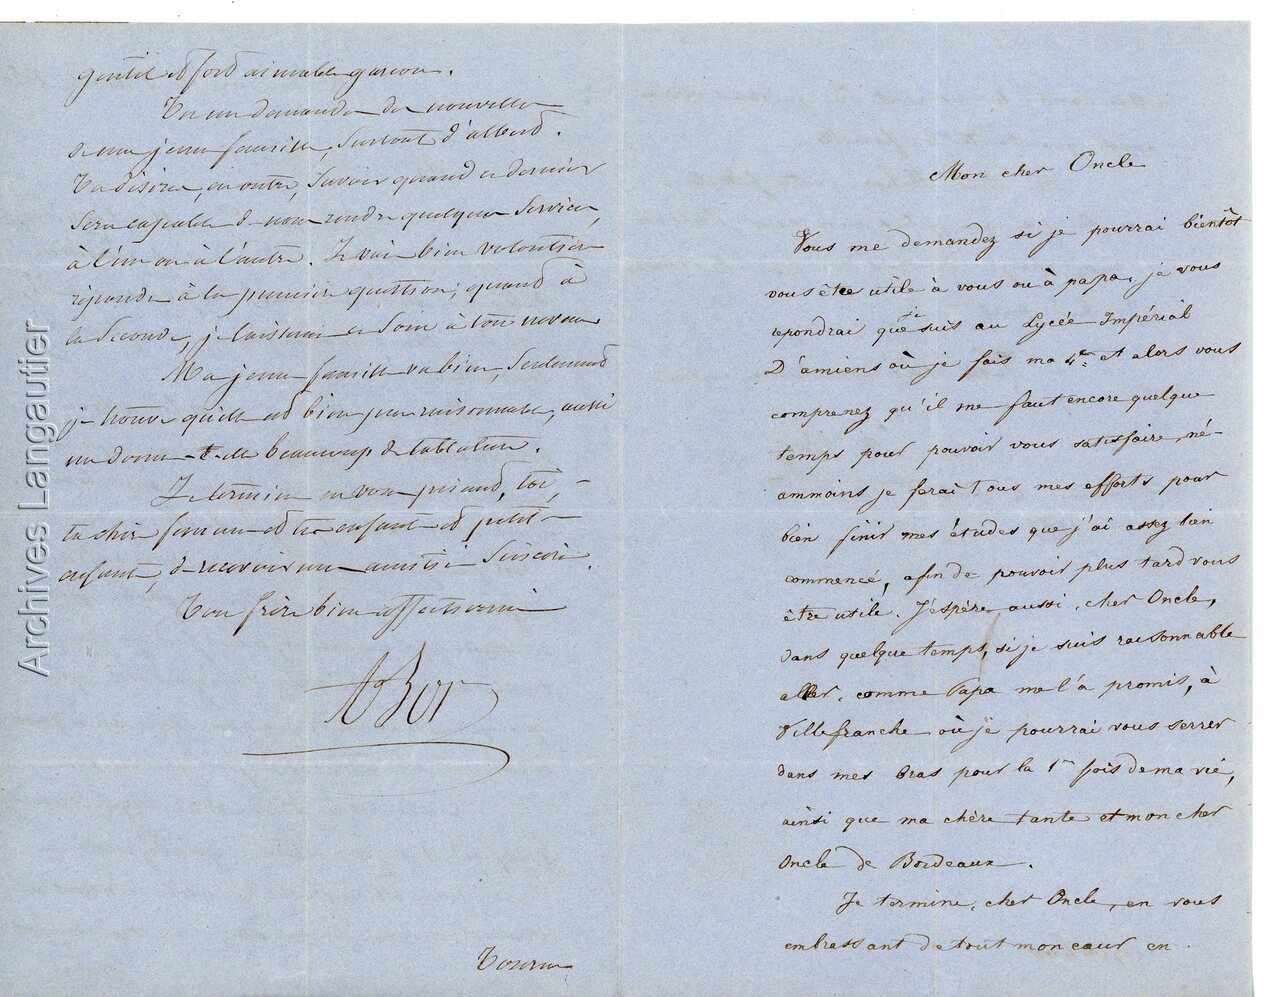 gentil et fort aimable garçon.
Tu me demandes des nouvelles
de ma jeune famille, surtout d'abord.
Tu désires, en outre, savoir quand ce dernier
sera capable de nous rendre quelques services,
à l'un ou à l'autre. Je vais bien volontiers
répondre à la première question; quand à
la seconde, je laisserai ce soin à ton neveu.
Ma jeune famille va bien, seulement
je trouve qu'elle est bien peu raisonnable, aussi
me donne-t-elle beaucoup de tablature.
Je termine en vous priant, toi,
ta chère femme et tes enfants et petits-
enfants, de recevoir mes amitiés sincères.
Ton frère bien affectionné
Tournez
Mon cher Oncle
Vous me demandez si je pourrai bientôt
vous être utile à vous ou à papa, je vous
repondrai que je suis au Lycée Impérial
D'amiens où je fais ma 4e et alors vous
comprenez qu'il me faut encore quelque
temps pour pouvoir vous satisfaire, né-
ammoins je ferai tous mes efforts pour
bien finir mes études que j'ai assez bien
commencé, afin de pouvoir plus tard vous
être utile. J'espère aussi, cher Oncle,
dans quelque temps, si je suis raisonnable
aller, comme Papa me l'a promis, à
Villefranche où je pourrai vous serrer
dans mes bras pour la 1re fois de ma vie,
ainsi que ma chère tante et mon cher
Oncle de Bordeaux.
Je termine, cher Oncle, en vous
embrassant de tout mon cœur en
Archives Langautier